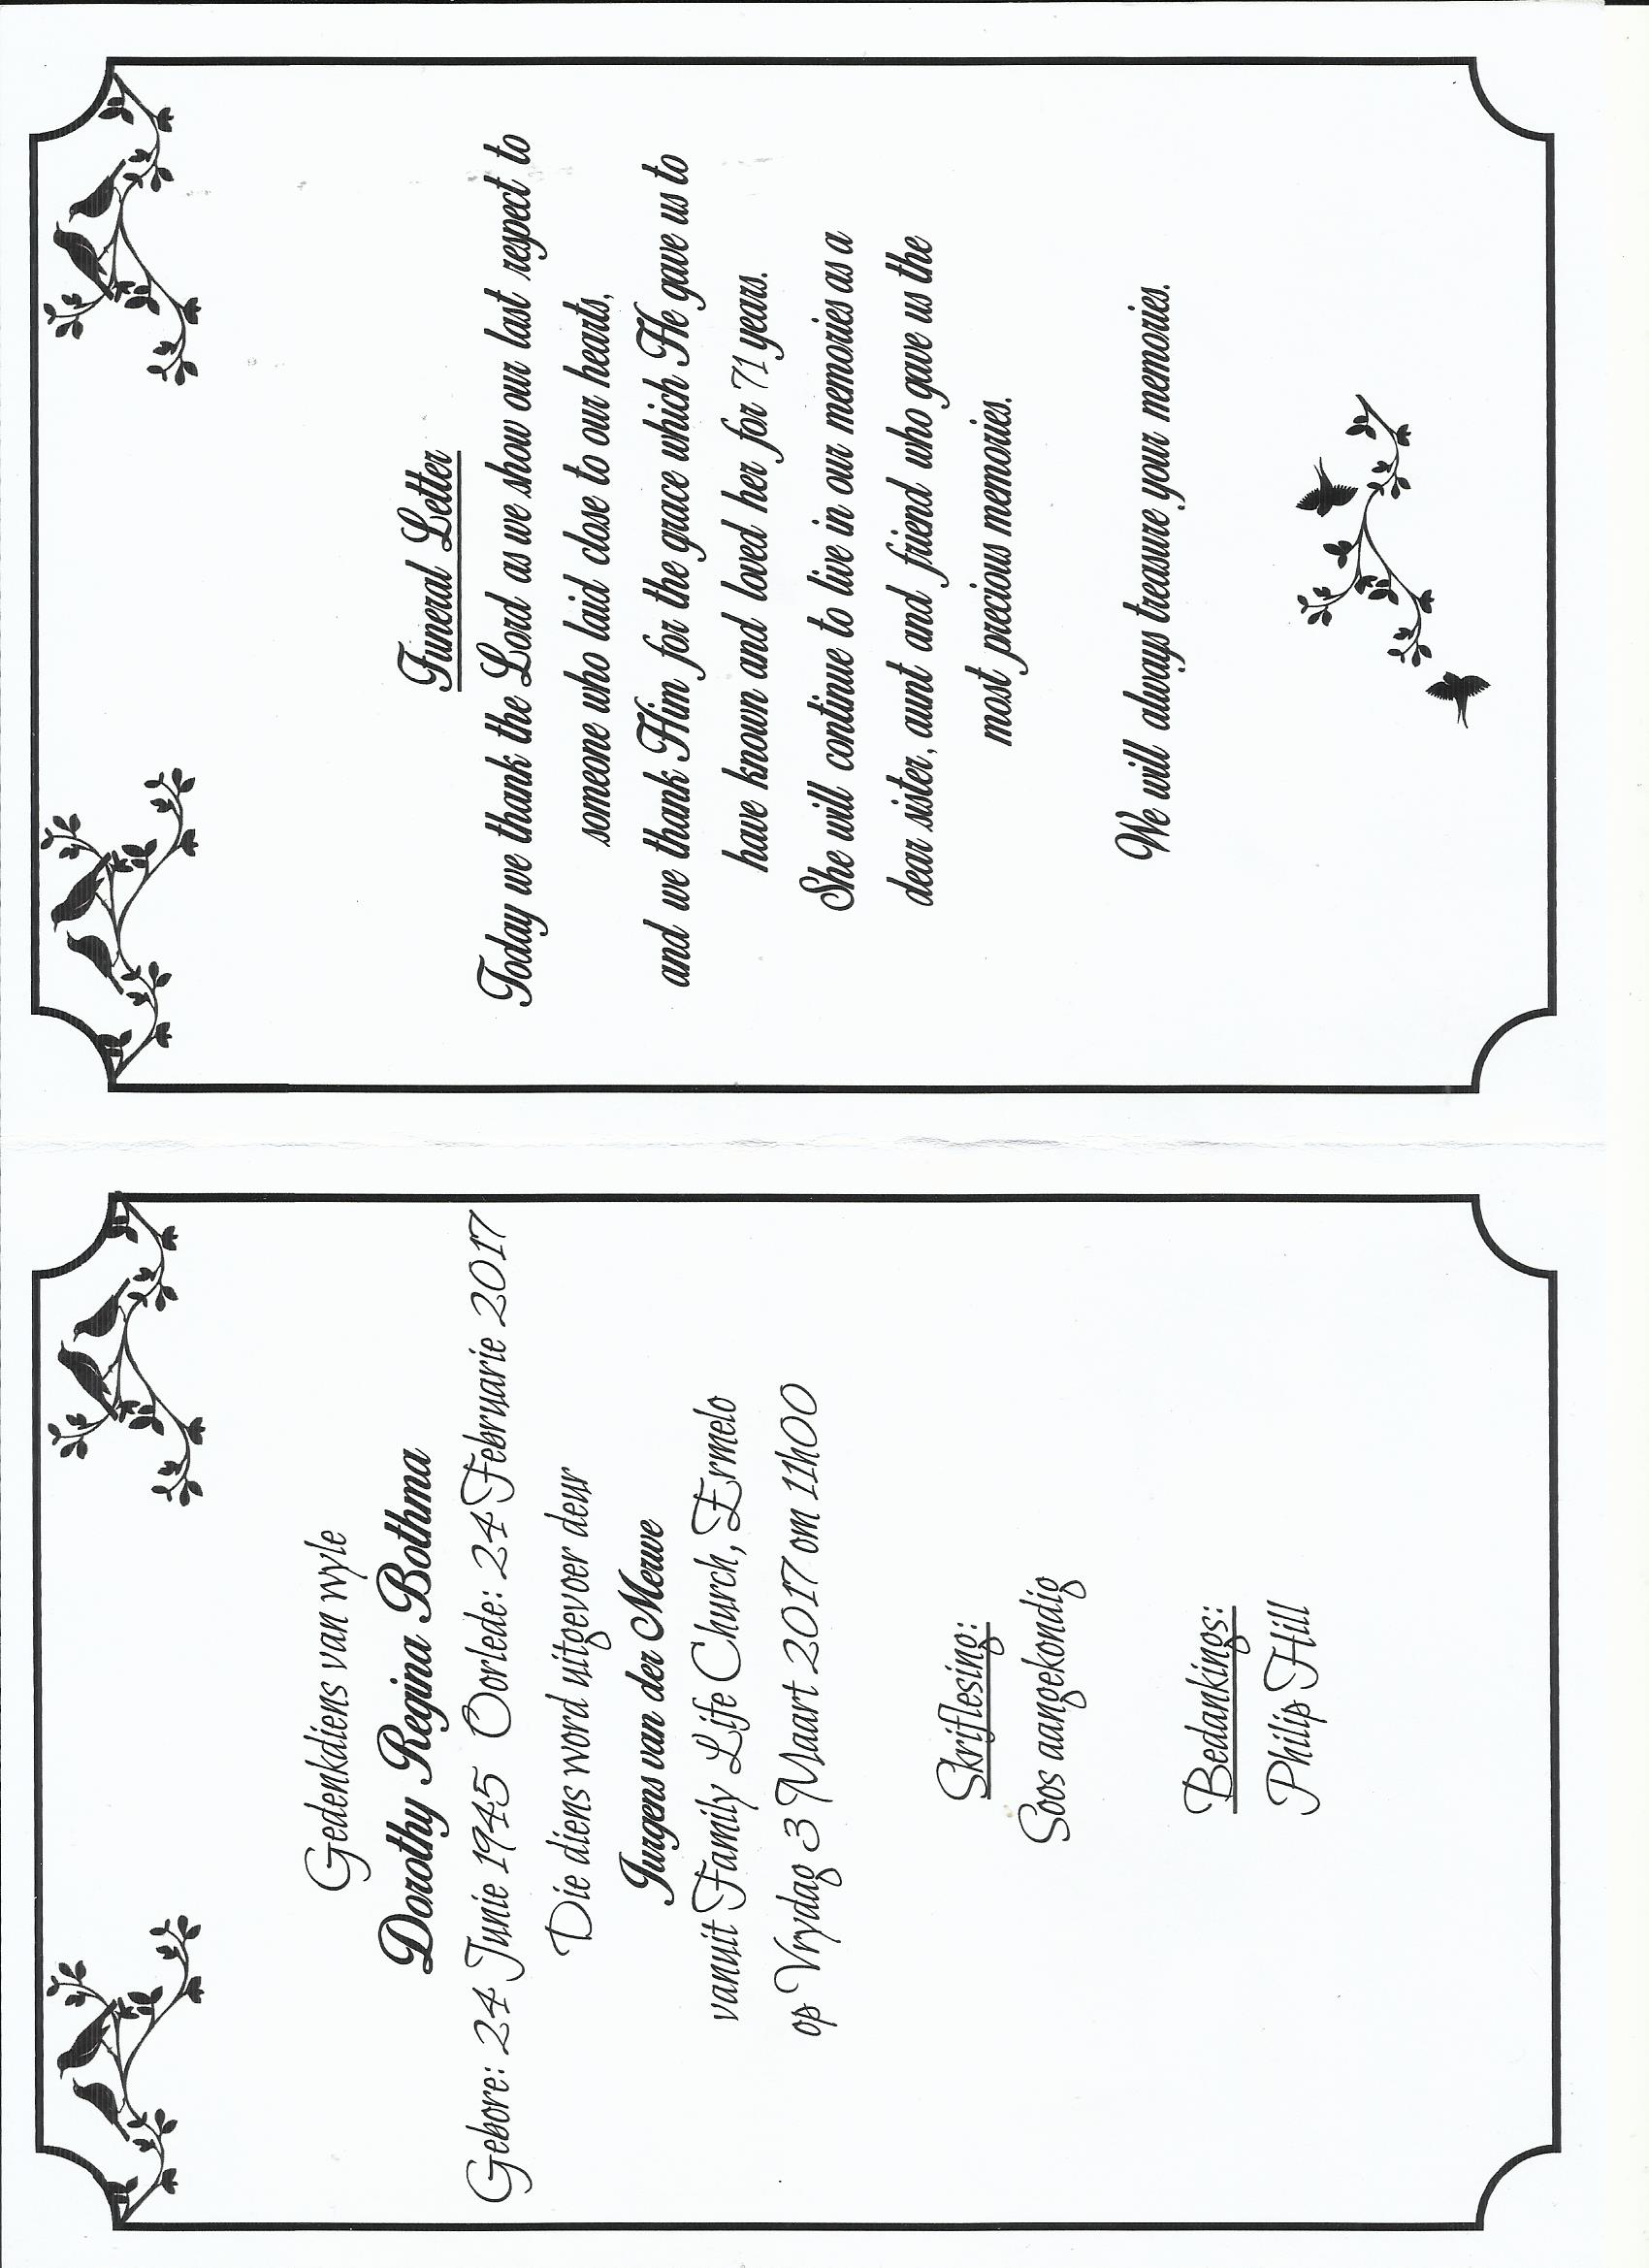 Gedenkdiens van wyle
Dorothy Regina Bothma
Gebore: 24 Junie 1945 Oorlede: 24 Februarie 2017
Die diens word uitgevoer deur
Jurgens van der Merwe
vanuit Family Life Church, Ermelo
op Vrydag 3 Maart 2017 om 11h00
Skriflesing:
Soos aangekondig
Bedankings:
Philip Hill
Funeral Letter
Today we thank the Lord as we show our last respect to
someone who laid close to our hearts,
and we thank Him for the grace which He gave us to
have known and loved her for 71 years.
She will continue to live in our memories as a
dear sister, aunt and friend who gave us the
most precious memories.
We will always treasure your memories.